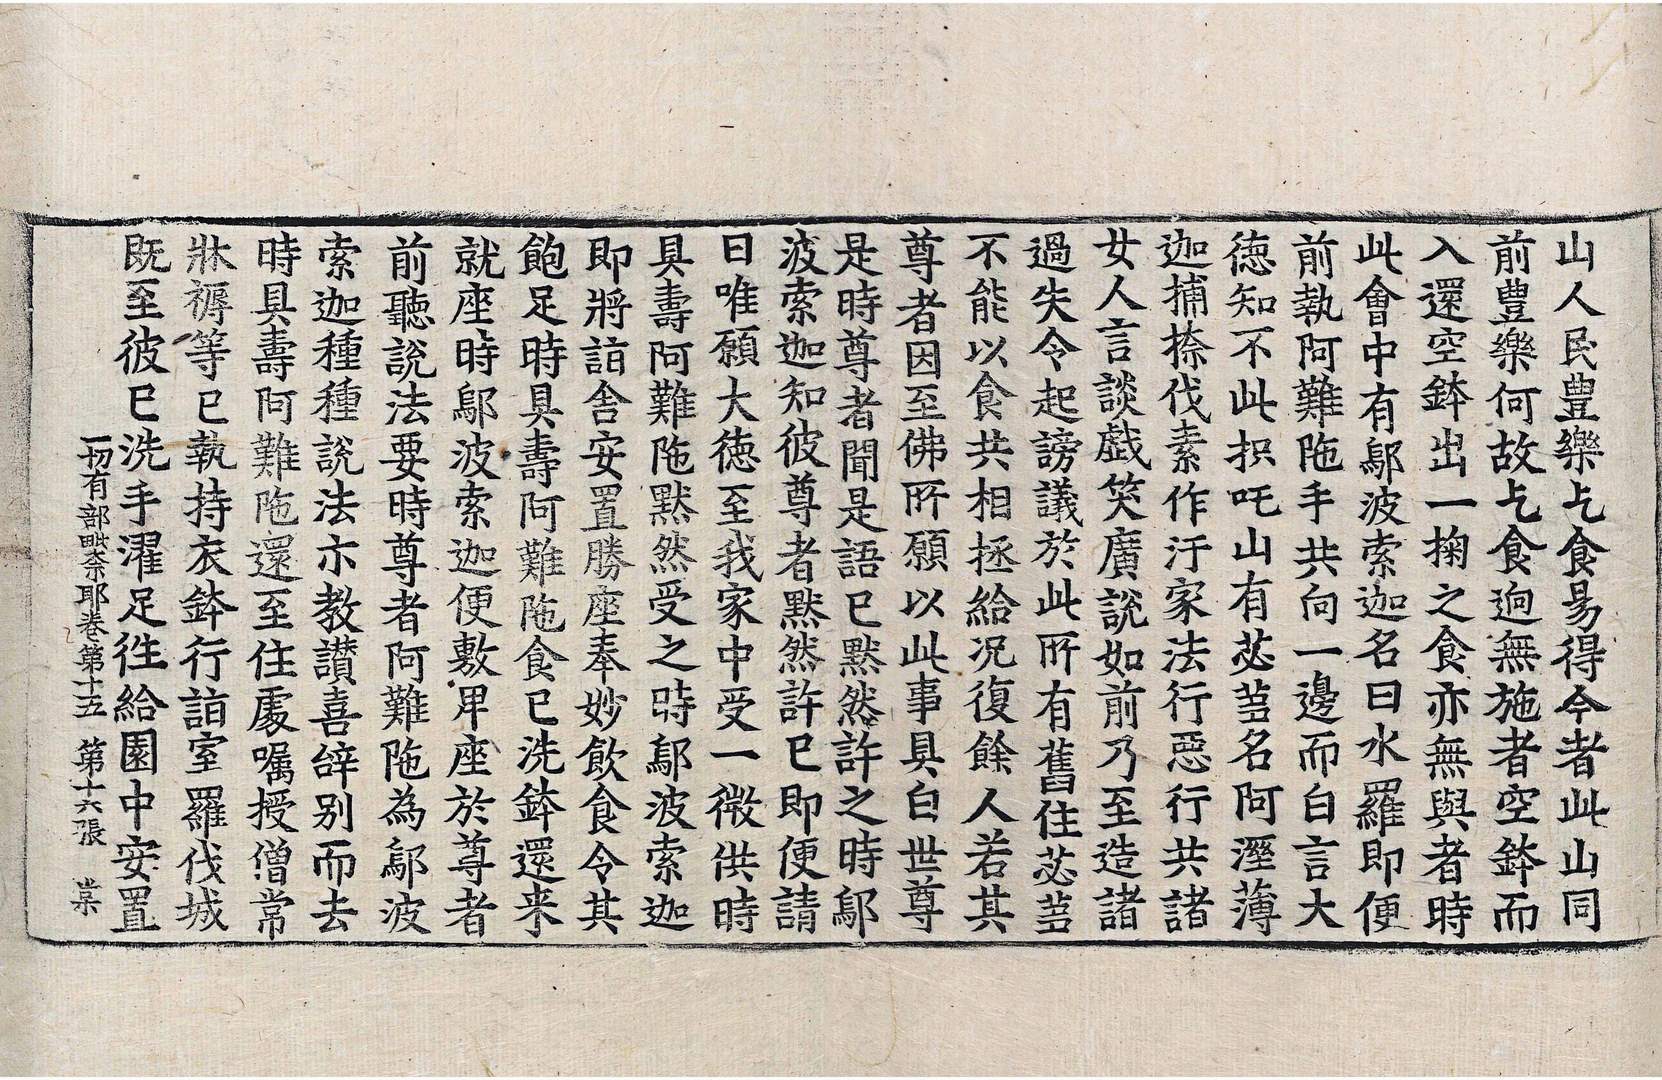 山人民豊樂乞食易得今者此山同
前豊樂何故乞食逈無施者空鉢而
入還空鉢出一掬之食亦無與者時
此會中有鄔波索迦名曰水羅即便
前執阿難陁手共向一邊而白言大
德知不此枳吒山有苾芻名阿溼薄
迦捕捺伐素作汙家法行惡行共諸
女人言談戱笑廣說如前乃至造諸
過失令起謗議於此所有舊住苾芻
不能以食共相拯給况復餘人若其
尊者因至佛所願以此事具白世尊
是時尊者聞是語已黙然許之時鄔
波索迦知彼尊者黙然許已即便請
曰唯願大德至我家中受一微供時
具壽阿難陁黙然受之時鄔波索迦
即將詣舍安置勝座奉妙飲食令其
飽足時具壽阿難陁食已洗鉢還来
就座時鄔波索迦便敷卑座於尊者
前聽說法要時尊者阿難陁為鄔波
索迦種種說法示教讃喜辝别而去
時具壽阿難陁還至住處囑授僧常
牀褥等已執持衣鉢行詣室羅伐城
既至彼已洗手濯足徃給園中安置
一切有部毗奈耶卷第十五　第十六張　棠